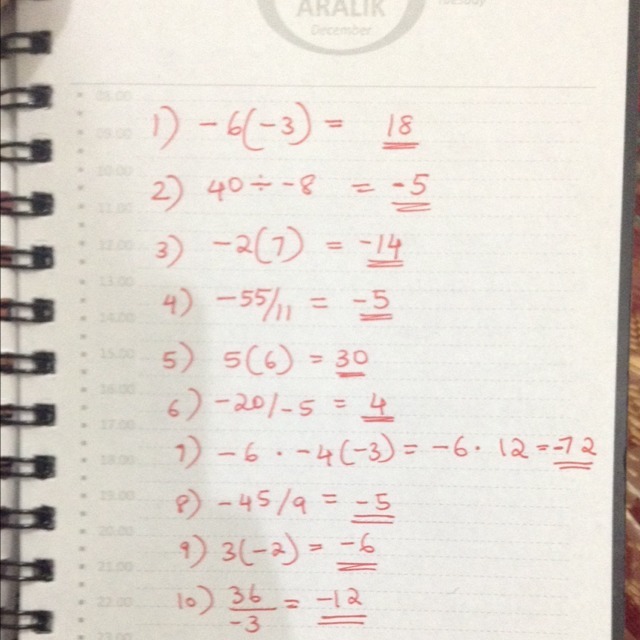 ARALIK
December
Tuesday
09.00
10.00
11.00
12.00
13.00
14.00
15.00
16.00
17.00
18.00
19.00
20.00
21.00
22.00
1) -6(-3) = 18
2) 40 ÷ -8 = -5
3) -2(7) = -14
4) -55/11 = -5
5) 5(6) = 30
6) -20/-5 = 4
7) -6 · -4(-3) = -6 · 12 = -72
8) -45/9 = -5
9) 3(-2) = -6
10) 36/-3 = -12